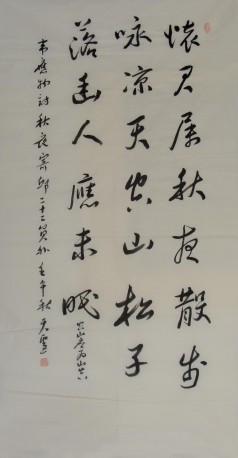 懷君屬秋夜散步
咏凉天空山松子
落幽人應未眠
韦應物詩秋夜寄邱二十二員外壬午秋